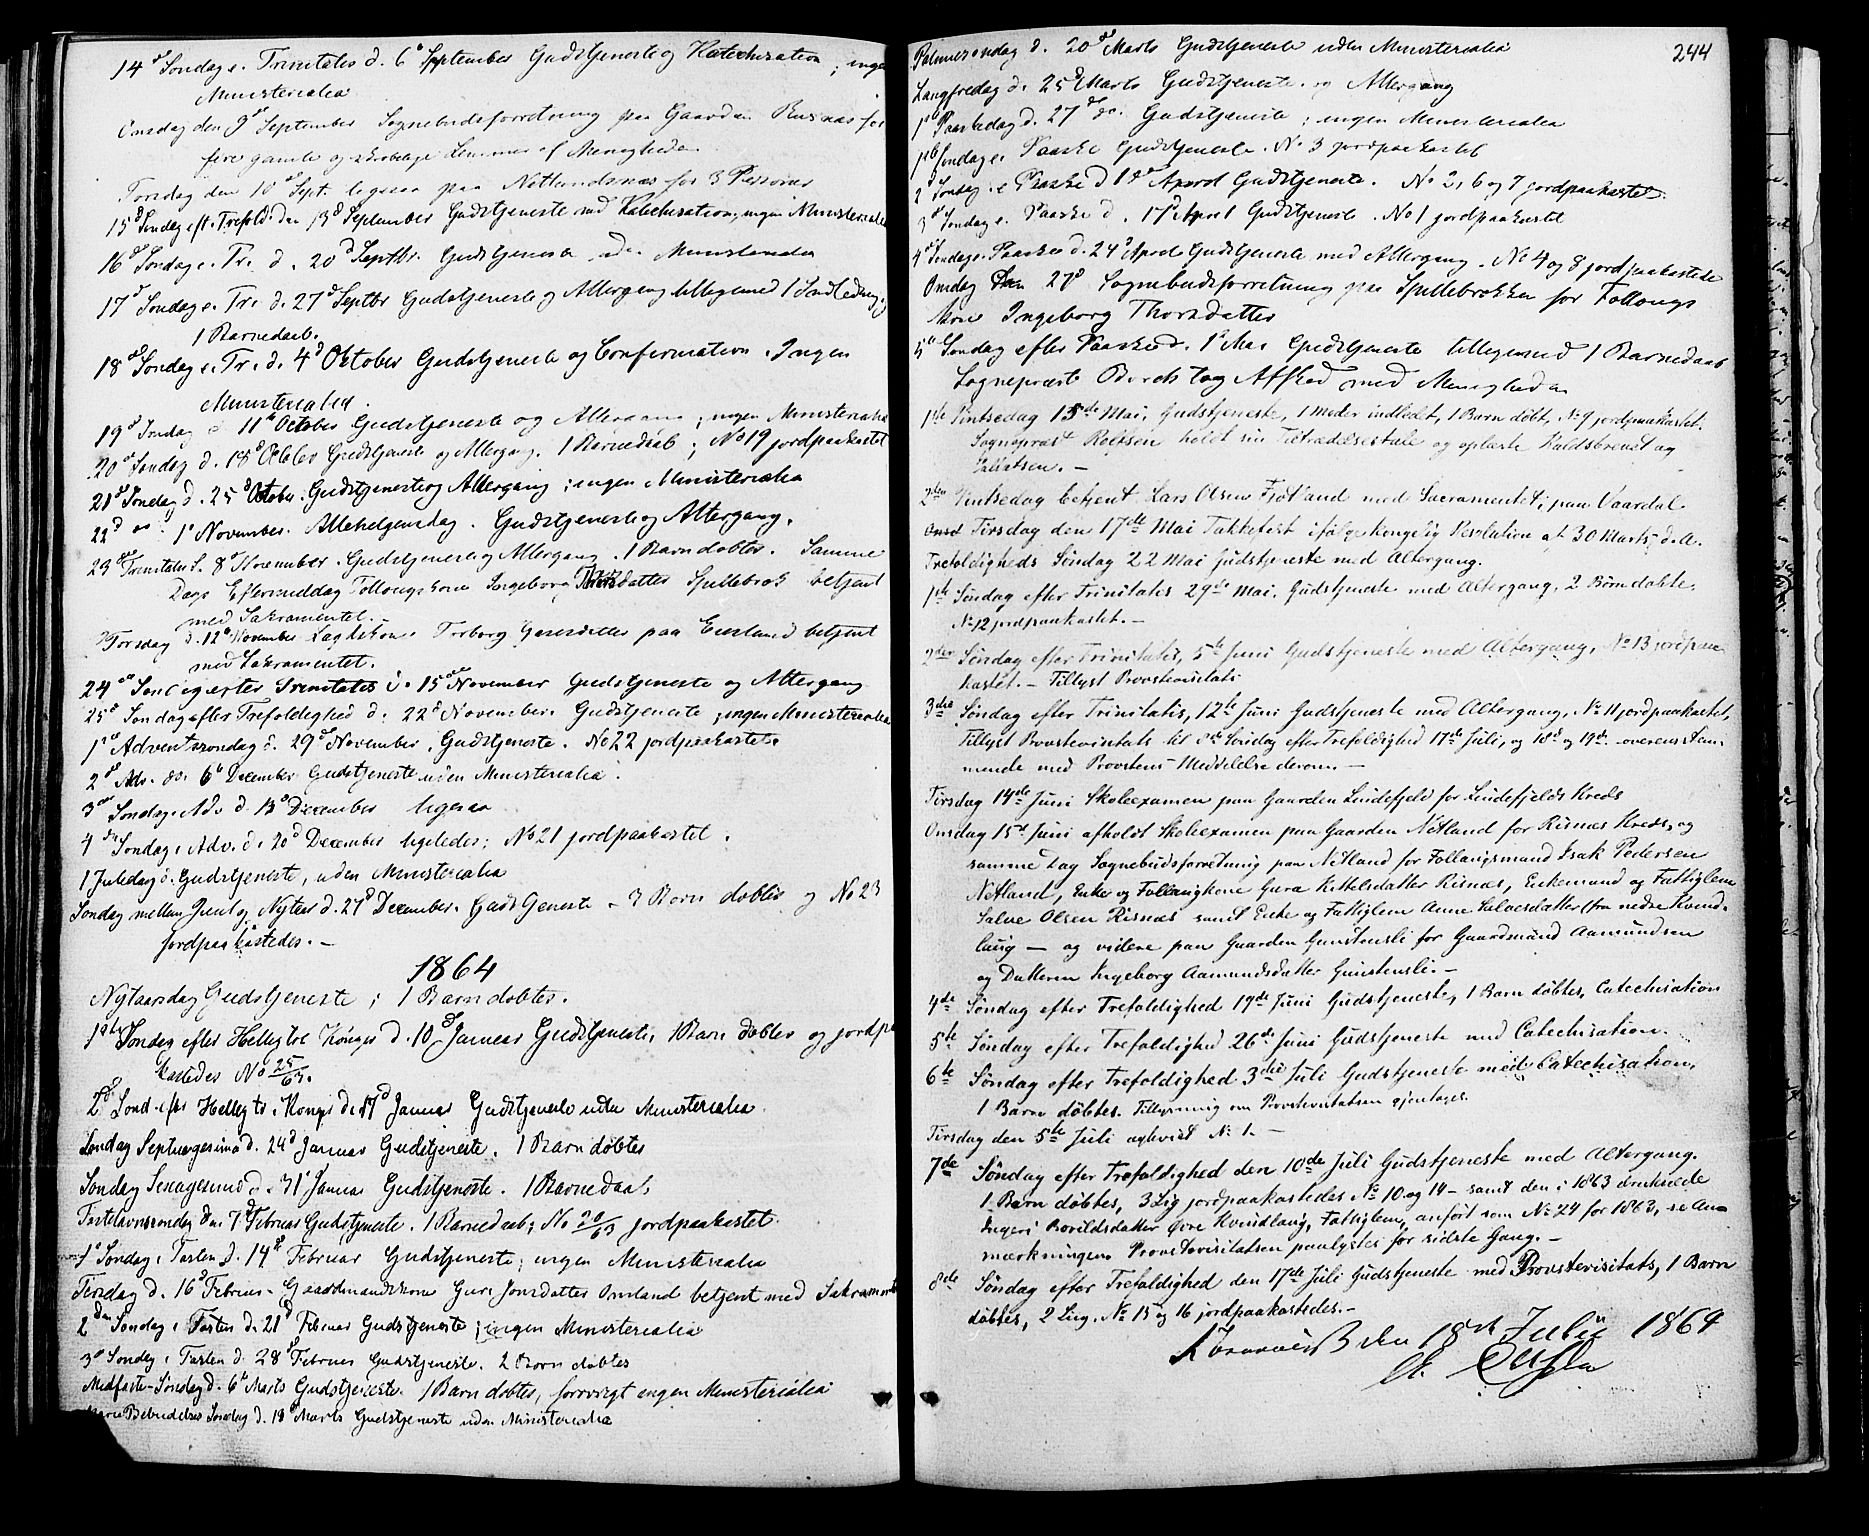 14de Søndag e. Trinitatis d. 6te September Gudstjeneste og Katechisation; ingen
Ministerialia
Onsdag den 9de September Sognebudsforretning paa Gaarden Risnæs for
fire gamle og skrøbelige Lemmer af Menigheden.
Torsdag den 10de Sept. ligesaa paa Netlandsnæs for 3 Personer
15de Søndag eft. Trefold. den 13de September Gudstjeneste med Katechisation, ingen Ministerialia
16de Søndag e. Tr. d. 20de Septbr. Gudstjeneste uden Ministerialia
17de Søndag e. Tr. d. 27de Septbr Gudstjeneste og Altergang tilligemed 1 Indledning,
1 Barnedaab.
18de Søndag e. Tr. d. 4de Oktober Gudstjeneste og Confirmation. Ingen
Ministerialia.
19de Søndag d. 11te October Gudstjeneste og Altergang; ingen Ministerialia
20de Søndag d. 18de October Gudstjeneste og Altergang. 1 Barnedaab; No 19 jordpaakastet
21de Søndag d. 25de October. Gudstjeneste og Altergang; ingen Ministerialia
22de do. 1te November. Allehelgensdag. Gudstjeneste og Altergang.
23de Trinitatis S. 8de November. Gudstjeneste og Altergang. 1 Barn døbtes. Samme
Dags Eftermiddag Føllougskone Ingeborg Thorsdatter Spillebrok betjent
med Sakramentet.
Torsdag d. 12te November Lægdskone Torborg Geresdatter paa Eiesland betjent
med Sakramentet.
24de Søndag efter Trinitatis d. 15de November Gudstjeneste og Altergang
25de Søndag efter Trefoldighed d. 22de November. Gudstjeneste, ingen Ministerialia
1ste Adventssøndag d. 29de November. Gudstjeneste. No 22 jordpaakastet.
2de Adv. do. 6te December Gudstjeneste uden Ministerialia.
3die Søndag i Adv d. 13de December ligesaa
4de Søndag i Adv. d. 20de December ligeledes; No 21 jordpaakastet.
1 Juledag d. Gudstjeneste, uden Ministerialia
Søndag mellem Juul og Nytaar d. 27de December. Gudstjeneste - 3 Børn døbtes og No 23
jordpaakastedes. —
1864
Nytaarsdag Gudstjeneste; 1 Barn døbtes.
1ste Søndag efter Hellig tre Konger d. 10de Januar Gudstjeneste, 1 Barn døbtes og jordpaa
kastedes No 25/63.
2de Sønd. efter Hellig tre Konger d. 17de Januar Gudstjeneste uden Ministerialia.
Søndag Septuagesima d. 24de Januar Gudstjeneste. 1 Barn døbtes
Søndag Sexagesima d. 31te Januar Gudstjeneste. 1 Barnedaab
Fastelavnssøndag den 7de Februar Gudstjeneste. 1 Barnedaab; No 20/63 jordpaakastet.
1ste Søndag i Fasten d. 14de Februar Gudstjeneste; ingen Ministerialia
Tirsdag d. 16de Februar. Gaardmandskone Guri Jonsdatter Omland betjent med Sakrament
2den Søndag i Fasten d. 21de Februar Gudstjeneste; ingen Ministerialia
3die Søndag i Fasten d. 28de Februar Gudstjeneste. 2 Børn døbtes
Midfaste-Søndag d. 6te Marts Gudstjeneste. 1 Barn døbtes, forøvrigt ingen Ministerialia
Mariæ Bebudelses Søndag d. 13de Marts Gudstjeneste uden Ministerialia
244
Palmesøndag d. 20de Marts Gudstjeneste uden Ministerialia
Langfredag d. 25de Marts Gudstjeneste og Altergang
1ste Paaskedag d. 27de do. Gudstjeneste; ingen Ministerialia
1ste Søndag e. Paaske Gudstjeneste. No 3 jordpaakastet
2de Søndag e. Paaske d 10de April Gudstjeneste. No 2, 6 og 7 jordpaakastet.
3de Søndag e. Paaske d. 17de April Gudstjeneste. No 1 jordpaakastet
4de Søndag e. Paaske d. 24de April Gudstjeneste med Altergang. No 4 og 8 jordpaakastede
Onsdag Den 27de Sognebudsforretning paa Spillebrokken for Føllougs
kone Ingeborg Thorsdatter
5te Søndag efter Paaske d. 1ste Mai Gudstjeneste tilligemed 1 Barnedaab
Sognepræst Borch tog Afsked med Menigheden
1ste Pintsedag 15de Mai, Gudstjeneste, 1 Moder indledt, 1 Barn døbt, No 9 jordpaakastet.
Sognepræst Rolfsen holdt sin Tiltrædelsestale og oplæste Kaldsbrevet og
Collatsen. —
2den Pintsedag betjent Lars Olsen Fjotland med Sacramentet paa Vaardal.
Tirsdag den 17de Mai Takkefest ifølge kongelig Resolution af 30 Marts d. A.
Trefoldigheds Søndag 22 Mai Gudstjeneste med Altergang.
1ste Søndag efter Trinitatis 29de Mai. Gudstjeneste med Altergang, 2 Børn døbte.
No 12 jordpaakastet. —
2den Søndag efter Trinitatis, 5te Juni Gudstjeneste med Altergang, No 13 jordpaa
kastet. — Tillyst Provstevisitats
3die Søndag efter Trinitatis, 12te Juni Gudstjeneste med Altergang, No 11 jordpaakastet,
Tillyst Provstevisitats til 8de Søndag efter Trefoldighed 17de Juli, og 18de og 19de overensstem-
mende med Provstens Meddelelse derom. —
Tirsdag 14de Juni Skoleexamen paa Gaarden Lindefjeld for Lindefjelds Kreds
Onsdag 15de Juni afholdt Skoleexamen paa Gaarden Netland for Risnæs Kreds, og
samme Dag Sognebudsforretning paa Netland for Føllaugsmand Isak Pedersen
Netland, Enke og Føllaugkone Guro Kittelsdatter Risnæs, Enkemand og Fattiglem
Salve Olsen Risnæs samt Enke og Fattiglem Anne Salvesdatter fra nedre Kvind-
laug — og videre paa Gaarden Gunstensli for Gaardmand Aamundsen
og Datteren Ingeborg Aamundsdatter Gunstensli. —
4de Søndag efter Trefoldighed 19de Juni Gudstjeneste, 1 Barn døbtes, Catechisation
5te Søndag efter Trefoldighed 26de Juni Gudstjeneste med Catechisation.
6te Søndag efter Trefoldighed 3die Juli Gudstjeneste med Catechisation,
1 Barn døbtes. Tillysning om Provstevisitatsen gjentages.
Tirsdag den 5te Juli ægteviet No 1. —
7de Søndag efter Trefoldighed den 10de Juli Gudstjeneste med Altergang.
1 Barn døbtes, 3 Lig jordpaakastedes No 10 og 14 - samt den i 1863 druknede
Ingeri Borildsdatter Øvre Kvindlaug, Fattiglem, anført som No 24 for 1863, se An-
mærkningen. Provstevisitatsen paalystes for sidste Gang. —
8de Søndag efter Trefoldighed den 17de Juli Gudstjeneste med Provstevisitats, 1 Barn
døbtes, 2 Lig, No 15 og 16 jordpaakastedes. —
den 18de Juli 1864